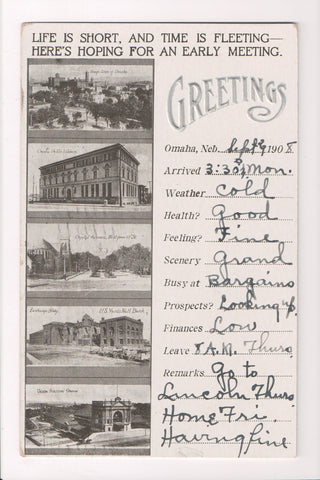 LIFE IS SHORT, AND TIME IS FLEETING—
HERE'S HOPING FOR AN EARLY MEETING.
GREETINGS
Omaha, Neb. Sept 190
Arrived 3:30 Mon.
Weather Cold
Health? Good
Feeling? Fine
Scenery Grand
Busy at Bargains
Prospects? Looking up.
Finances Low
Leave 8 A.M. Thurs
Remarks Go to
Lincoln Thurs
Home Fri.
Having fine
Omaha Public Library
Exchange Bldg
Union Station Omaha